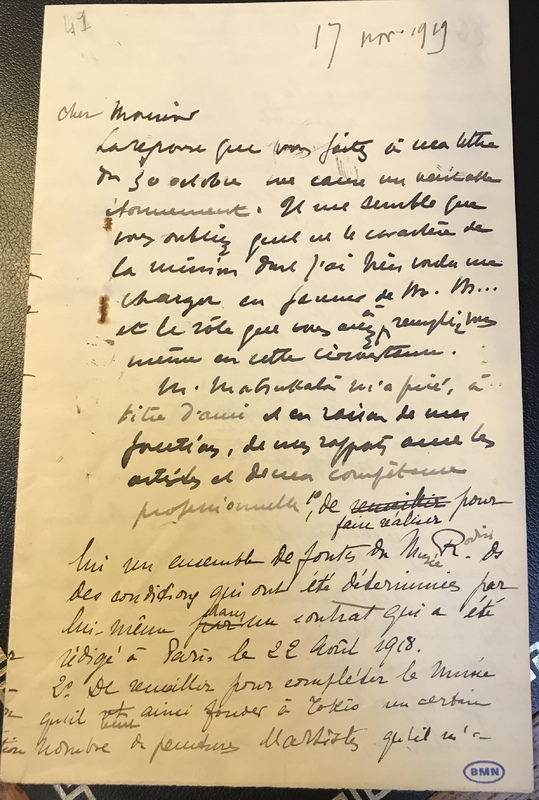 41
17 nov. 1919
cher Monsieur
La réponse que vous faites à ma lettre
du 30 octobre me cause un véritable
étonnement. Il me semble que
vous oubliez quel est le caractère de
la mission dont j'ai bien voulu me
charger en faveur de M. M...
et le rôle que vous avez à remplir vous
même en cette circonstance.
M. Matsukata m'a prié, à
titre d'ami et en raison de mes
fonctions, de mes rapports avec les
artistes et de ma compétence
professionnelle, 1º, de recueillir pour
faire réaliser
lui un ensemble de fontes du Musée Rodin ds
des conditions qui ont été déterminées par
lui-même par dans un contrat qui a été
rédigé à Paris le 22 Août 1918.
2º De recueillir pour compléter le Musée
qu'il veut ainsi fonder à Tokio un certain
nombre de peintures d'artistes qu'il m'a
BMN